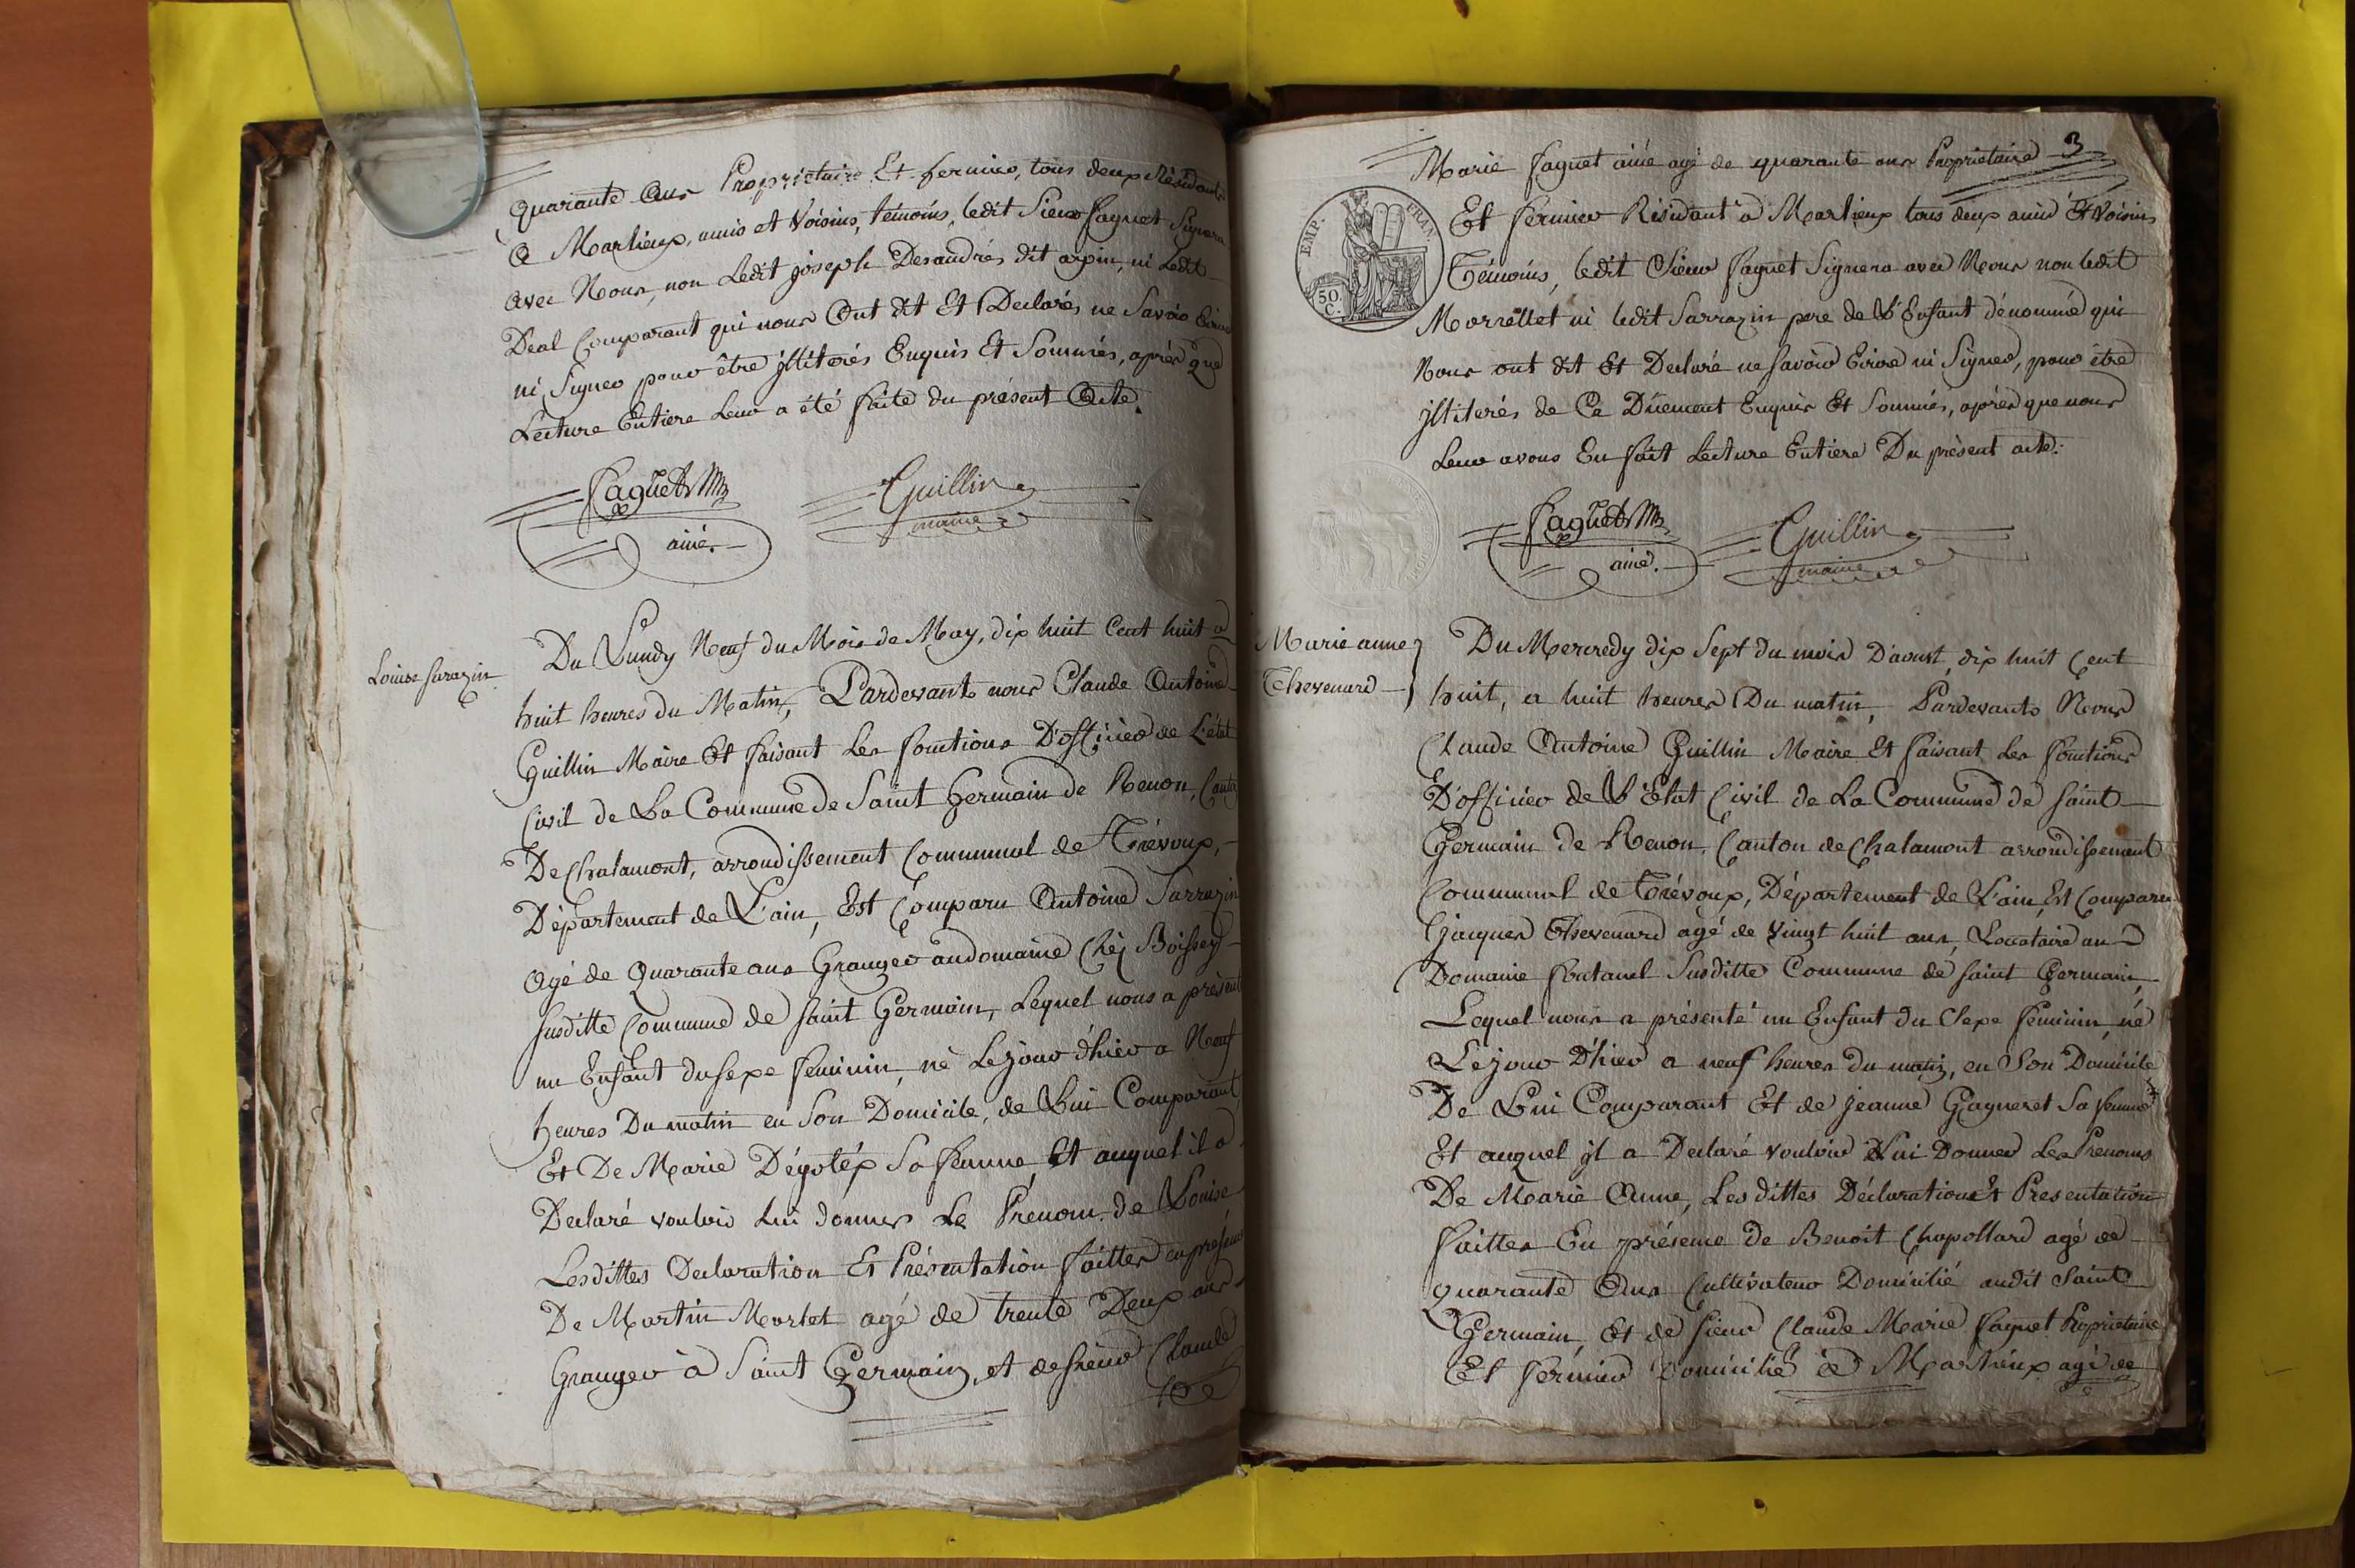 quarante ans Propriétaire Et fermier, tous deux Résidants
à Marlieux, amis et Voisins, témoins, ledit Sieur faguet Signera
avec Nous, non Ledit joseph Desandrés dit arpin, ni Ledit
Déal Comparant qui nous Ont dit Et Declarés ne Savoir Ecrire
ni Signer pour être jllitérés Enquis Et Sommés, après que
Lecture Entiere Leur a été faite du présent Acte.
faguet
ainé.
Guillin
maire
Louise sarazin
Du Lundy Neuf du Mois de May, dix huit Cent huit a
huit heures du Matin, Pardevant nous Claude Antoine
Guillin Maire Et faisant Les fonctions D'officier de L'état
Civil de La Commune de Saint Germain de Renon, Canton
De Chalamont, arrondissement Communal de Trévoux,
Département de L'ain, Est Comparu Antoine Sarrazin
agé de Quarante ans Granger au domaine Chéz Boissey
susditte Commune de saint Germain, Lequel nous a présenté
un Enfant du sexe feminin, né Le jour d'hier a Neuf
heures Du matin en Son Domicile, de Lui Comparant,
Et De Marie Sa femme, Et auquel il a
Declaré vouloir Lui donner Le Prénom de Louise
Lesdittes Declaration Et Présentation faittes en présence
De Martin Morlet agé de trente Deux ans
Granger à Saint Germain, et de sieur Claude
3
Marie faguet ainé agé de quarante ans Propriétaire
EMP. FRAN.
50 C.
Et fermier Résidant à Marlieux tous deux amis Et Voisins
Témoins, ledit Sieur faguet Signera avec Nous non ledit
Morrellet ni ledit Sarrazin pere de L'Enfant dénommé qui
Nous ont dit Et Declaré ne savoir Ecrire ni Signer, pour être
jllitérés de Ce Dûement Enquis Et Sommés, après que nous
Leur avons En fait Lecture Entiere Du présent acte.
faguet
ainé.
Guillin
maire
Marie anne
Thevenard
Du Mercredy dix Sept du mois D'aoust, dix huit Cent
huit, a huit heures Du matin, Pardevant Nous
Claude Antoine Guillin Maire Et faisant Les fonctions
D'officier de L'Etat Civil de La Commune de saint
Germain de Renon, Canton de Chalamont arrondissement
Communal de Trévoux, Département de L'ain, Est Comparu
Jacques Thevenard agé de Vingt huit ans, Locataire au
Domaine fontanel Susditte Commune de saint Germain,
Lequel nous a présenté un Enfant du Sexe feminin, né
Le jour D'hier a neuf heures du matin, en Son Domicile
De Lui Comparant Et de jeanne Gagneret Sa femme
Et auquel jl a Declaré vouloir Lui Donner Les Prenoms
De Marie Anne, Les dittes Déclaration Et Presentation
faittes En présence de Benoit Chapollard agé de
quarante Ans Cultivateur Domicilié audit Saint
Germain, Et de sieur Claude Marie faguet Propriétaire
Et fermier Domicilié à Marlieux agé de